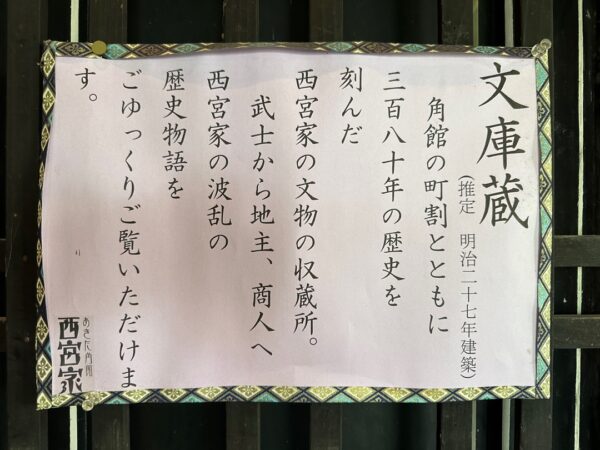 文庫蔵
(推定　明治二十七年建築)
角館の町割とともに
三百八十年の歴史を
刻んだ
西宮家の文物の収蔵所。
武士から地主、商人へ
西宮家の波乱の
歴史物語を
ごゆっくりご覧いただけま
す。
あきた角館
西宮家